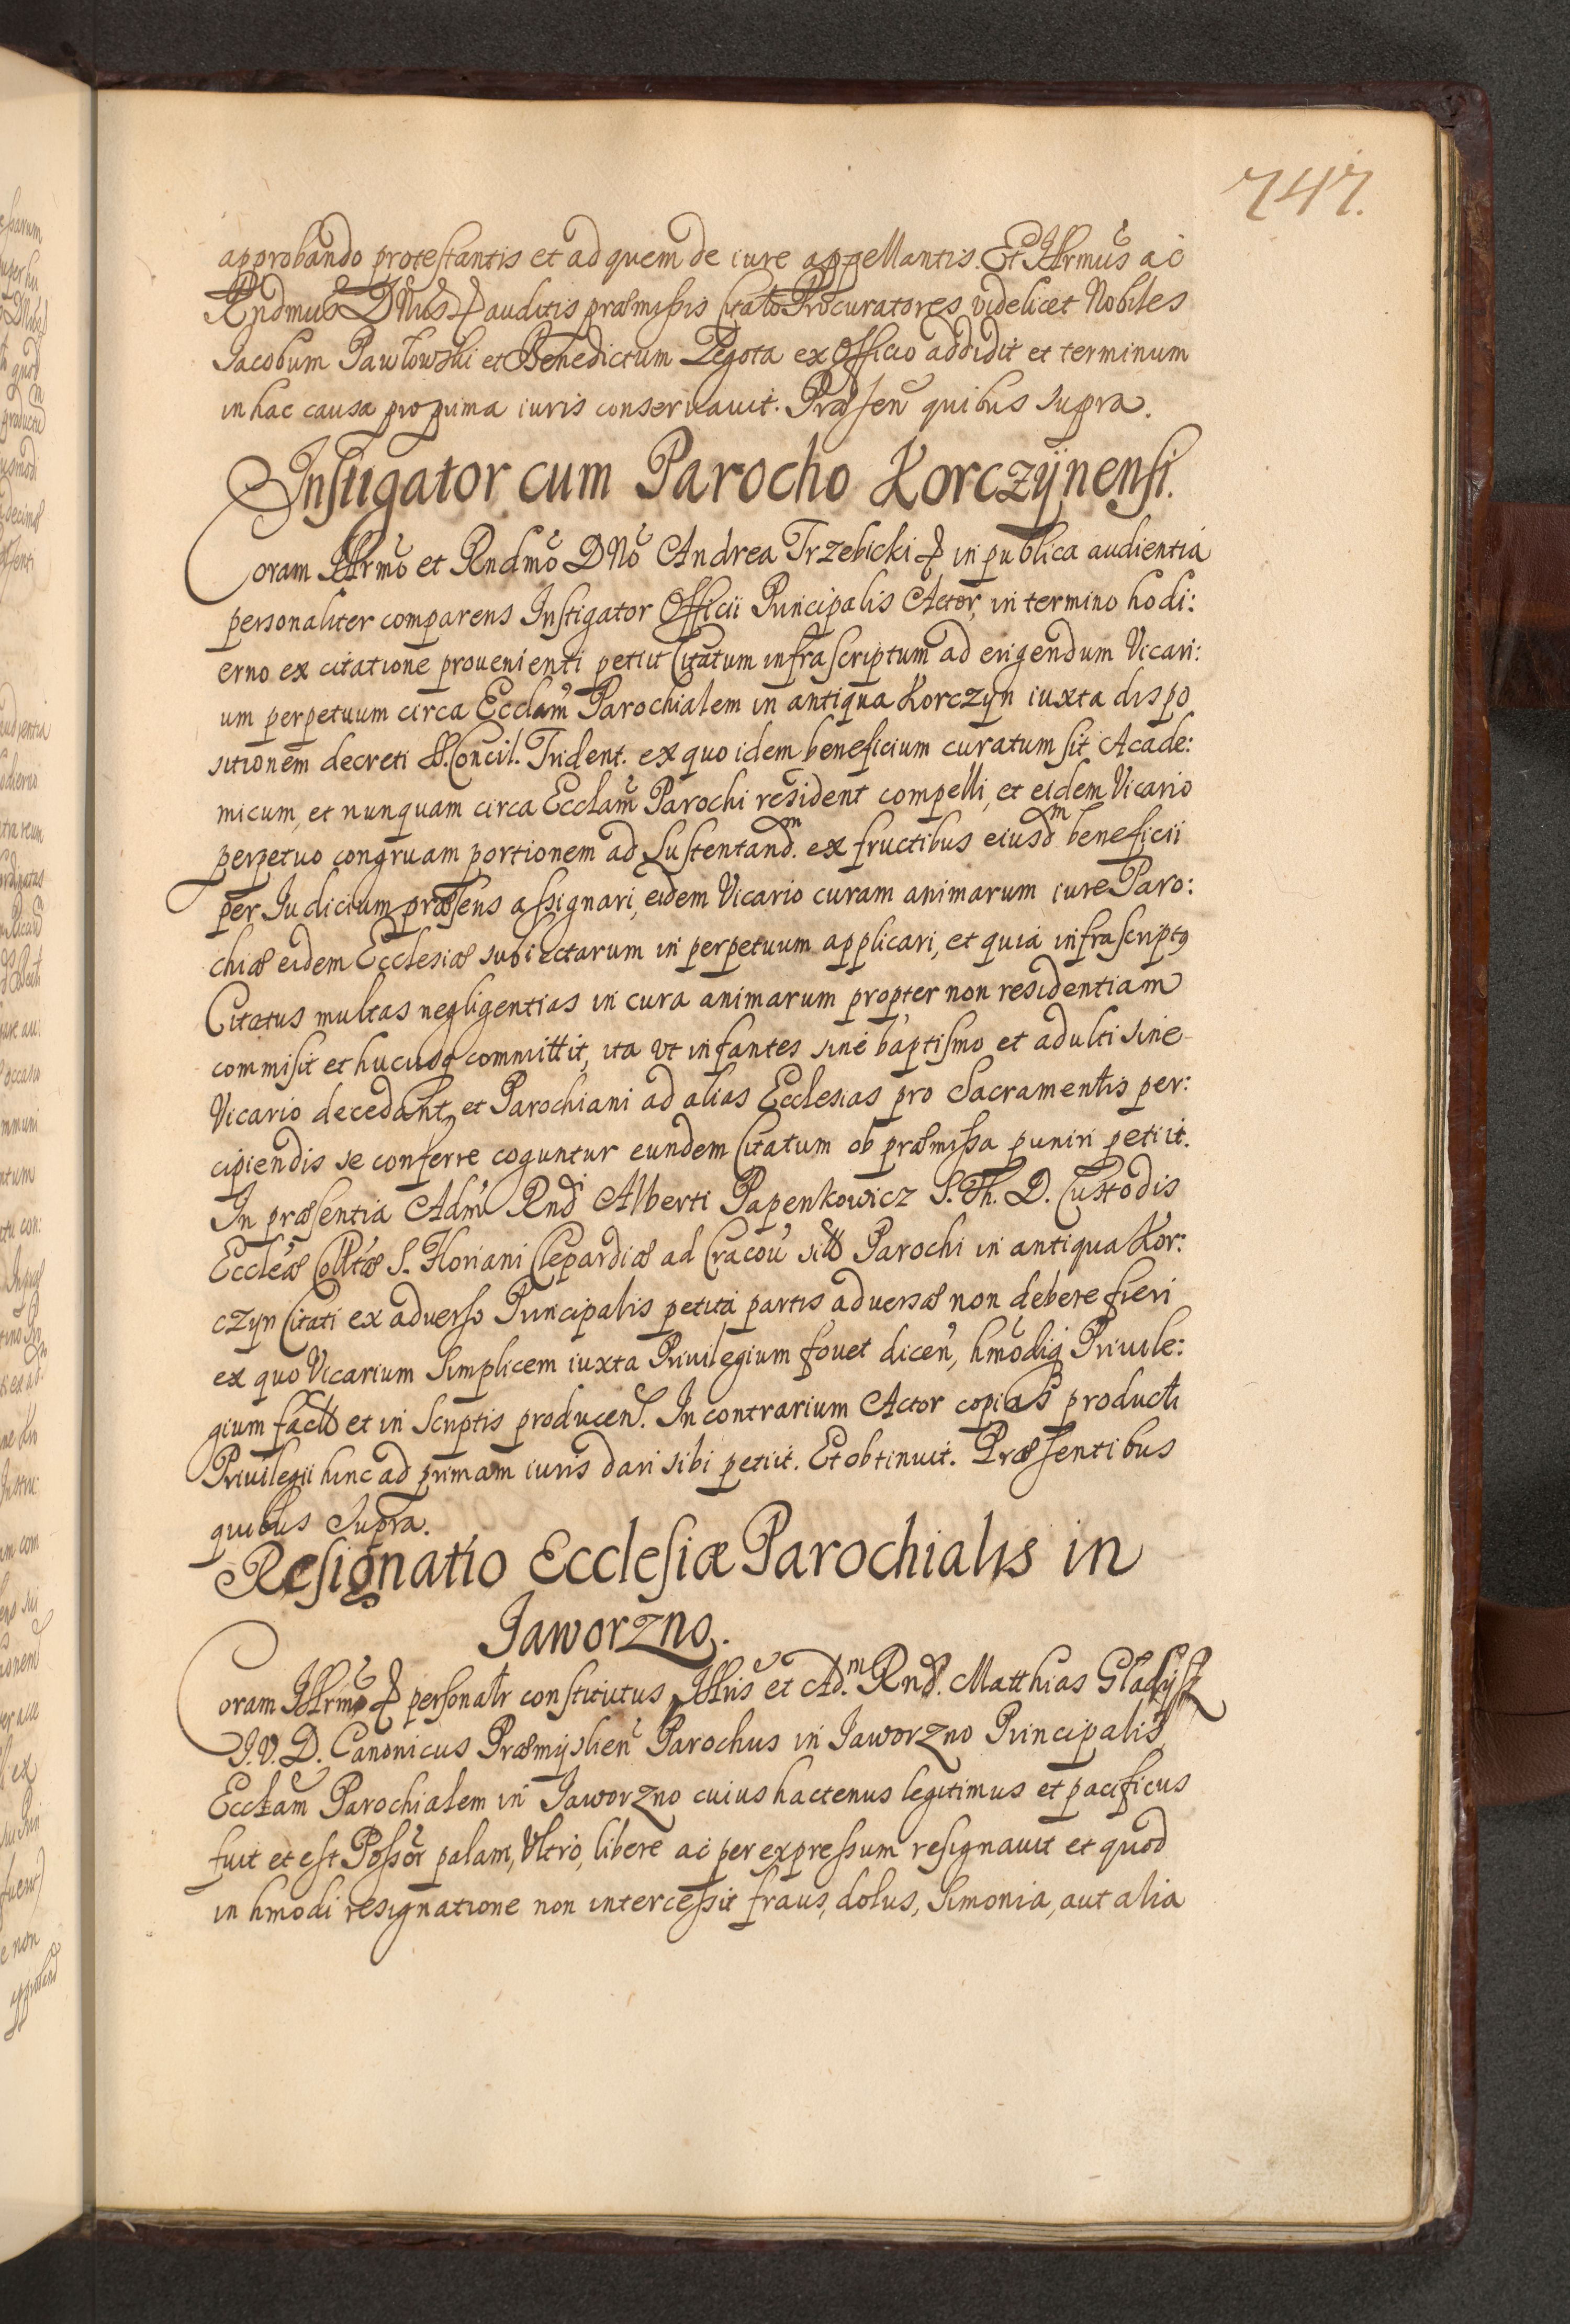 747.
approbando protestantis et ad quem de iure appellantis. Et Illrmus ac
Rndmus DNus & auditis præmissis Citato Procuratores videlicet Nobiles
Jacobum Pawłowski et Benedictum Pegota ex Officio addidit et terminum
in hac causa pro prima iuris conseruauit. Præsen quibus supra.
Instigator cum Parocho Korczÿnensi.
Coram Illrmo et Rndmo DNo Andrea Trzebicki & in publica audientia
personaliter comparens Instigator Officii Principalis Actor, in termino hodi:
erno ex citatione prouenienti petiit Citatum infrascriptum ad erigendum Vicari:
um perpetuum circa Ecclam Parochialem in antiqua Korczyn iuxta dispo
sitionem decreti S. Concil. Trident. ex quo idem beneficium curatum sit Acade:
micum, et nunquam circa Ecclam Parochi resident compelli, et eidem Vicario
perpetuo congruam portionem ad sustentandm. ex fructibus eiusdm beneficii
per Judicium præsens assignari, eidem Vicario curam animarum iure Paro:
chiæ eidem Ecclesiæ subiectarum in perpetuum applicari, et quia infrascriptq
Citatus multas negligentias in cura animarum propter non residentiam
commisit et hucusq committit, ita vt infantes sine baptismo et adulti sine
Vicario decedant, et Parochiani ad alias Ecclesias pro Sacramentis per:
cipiendis se conferre coguntur eundem Citatum ob præmissa puniri petiit.
In præsentia Adm Rndi Alberti Papenkowicz S. Th. D. Custodis
Eccleæ Colltæ S. Floriani Clepardiæ ad Cracou Parochi in antiqua Kor:
czyn Citati ex aduerso Principalis petita partis aduersæ non debere fieri
ex quo Vicarium simplicem iuxta Priuilegium fouet dicen, hmodiq Priuile:
gium et in scriptis producen. In contrarium Actor copias producti
Priuilegii hinc ad primam iuris dari sibi petiit. Et obtinuit. Præsentibus
quibus supra.
Resignatio Ecclesiæ Parochialis in
Jaworzno.
Coram Illrmo & personalr constitutus Illris et Adm. Rnd. Matthias Gladysz
J. V. D. Canonicus Præmyslien Parochus in Jaworzno Principalis
Ecclam Parochialem in Jaworzno cuius hactenus legitimus et pacificus
fuit et est Possor palam, Vltro, libere ac per expressum resignauit et quod
in hmodi resignatione non intercessit fraus, dolus, Simonia, aut alia